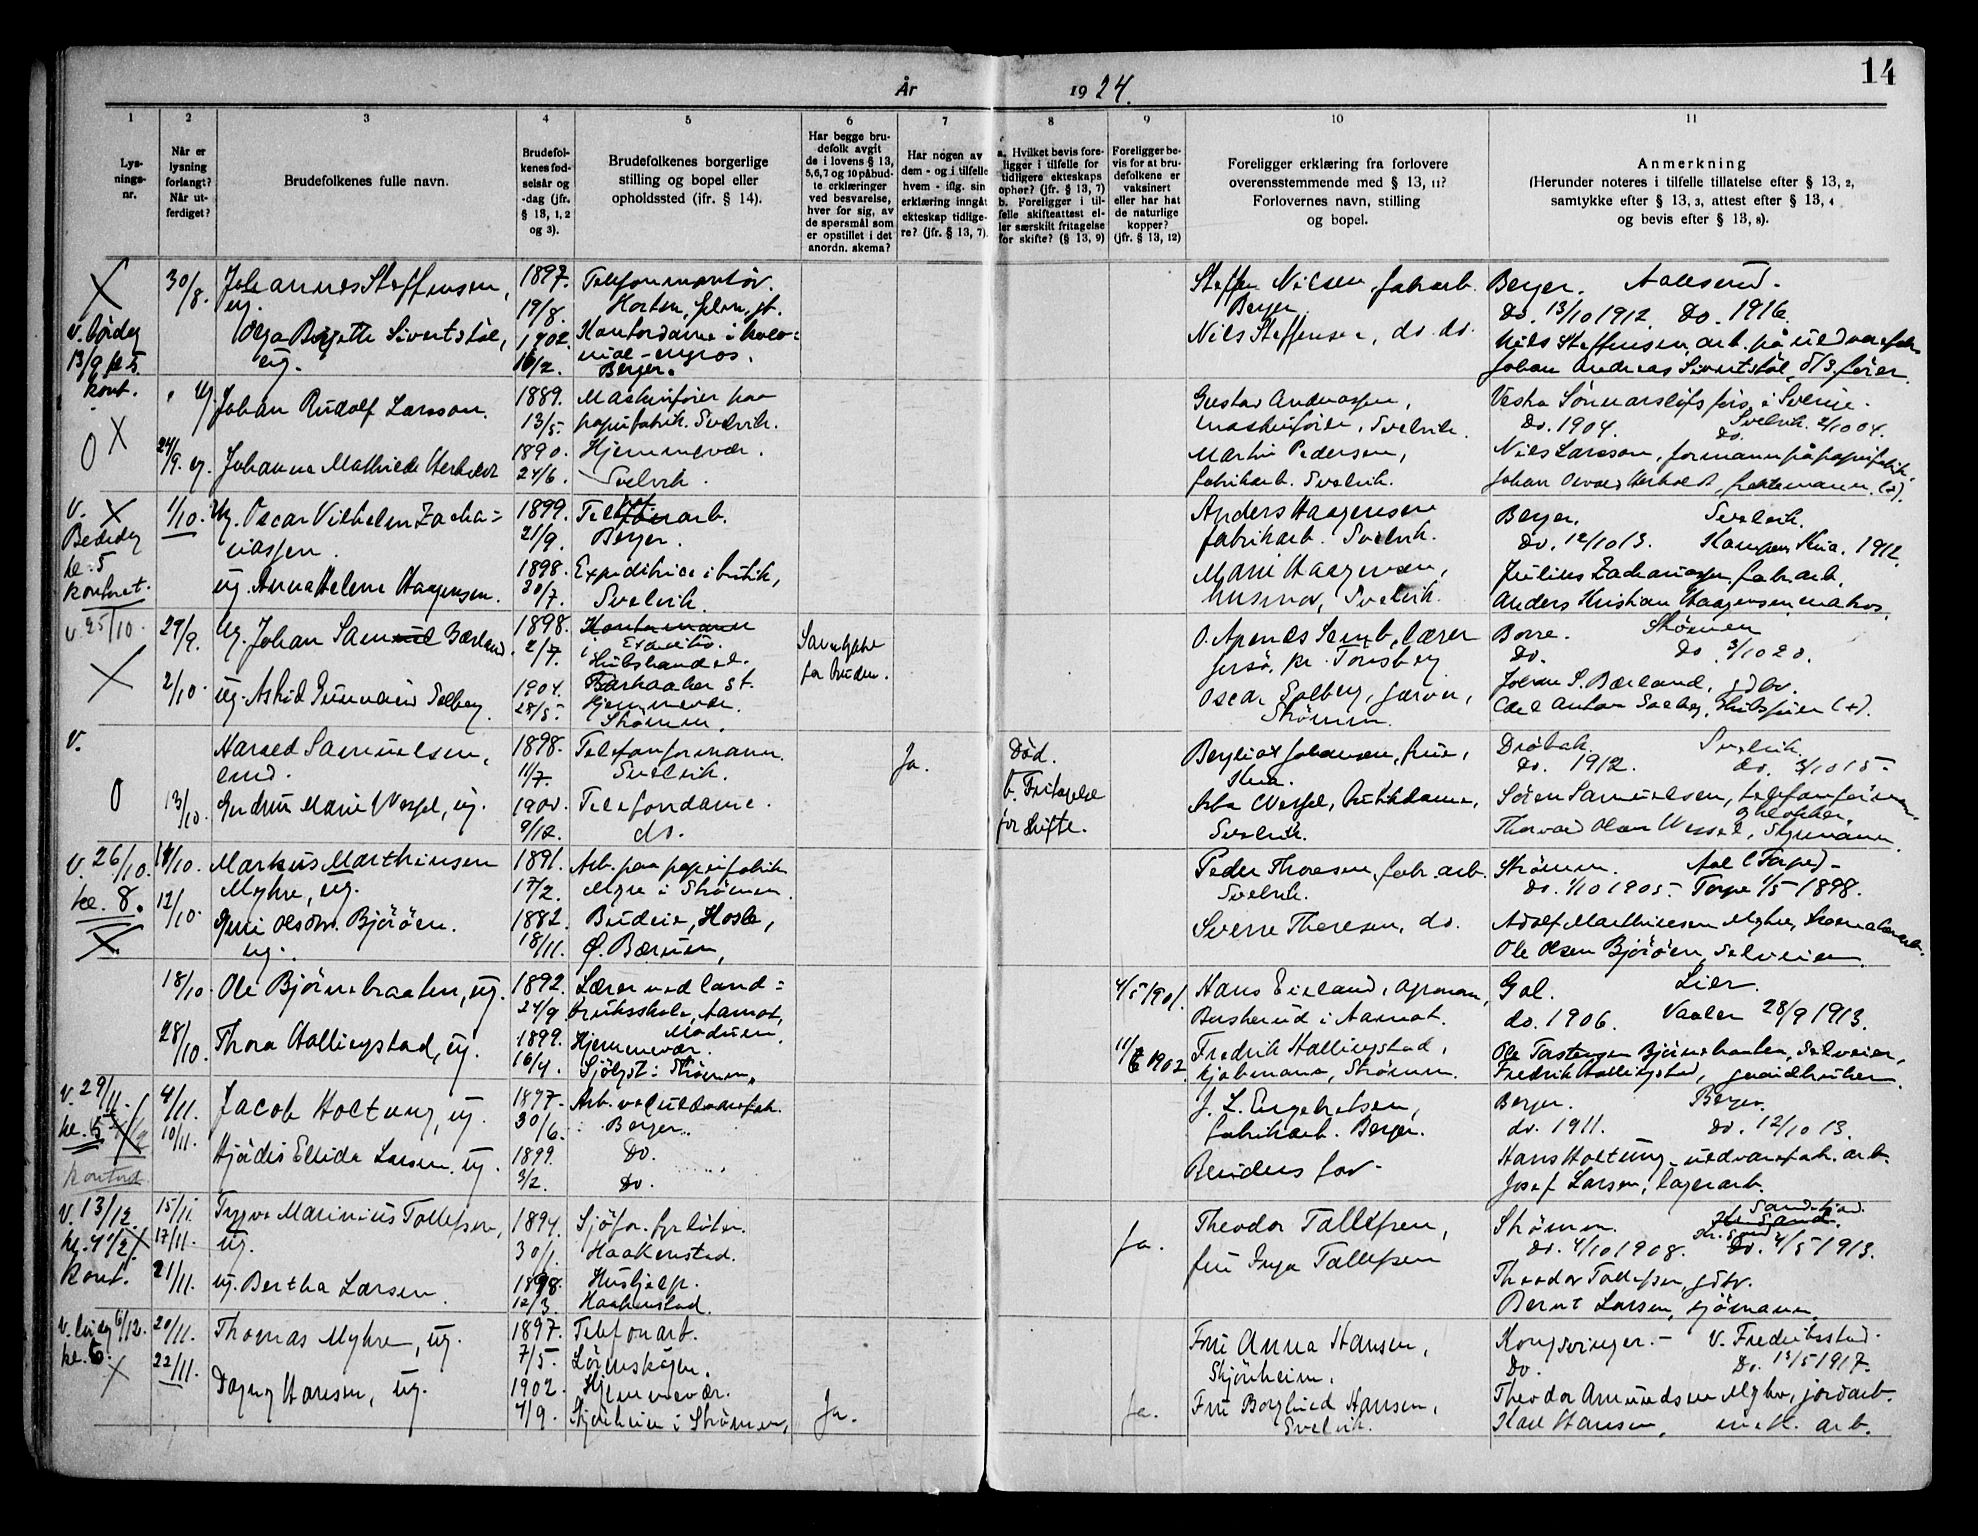 År 1924.
14
1
Lys-
nings-
nr.
2
Når er
lysning
forlangt?
Når ut-
ferdiget?
3
Brudefolkenes fulle navn.
4
Brudefol-
kenes fød-
selsår og
-dag (jfr.
§ 13, 1, 2
og 3).
5
Brudefolkenes borgerlige
stilling og bopel eller
opholdssted (ifr. § 14).
6
Har begge bru-
defolk avgit
de i lovens § 13,
5,6,7 og 10 påbud-
te erklæringer
ved besvarelse,
hver for sig, av
de spørsmål som
er opstillet i det
anordn. skema?
7
Har nogen av
dem - og i tilfelle
hvem - iflg. sin
erklæring inngåt
ekteskap tidlige-
re? (jfr. § 13, 7).
8
a. Hvilket bevis fore-
ligger i tilfelle for
tidligere ekteskaps
ophør? (jfr. § 13, 7)
b. Foreligger i til-
felle skifteattest el-
ler særskilt fritagelse
for skifte? (§ 13, 9)
9
Foreligger be-
vis for at bru-
defolkene er
vaksinert
eller har hat
de naturlige
kopper?
(jfr. § 13, 12)
10
Foreligger erklæring fra forlovere
overensstemmende med § 13, 11?
Forlovernes navn, stilling
og bopel.
11
Anmerkning
(Herunder noteres i tilfelle tillatelse efter § 13, 2,
samtykke efter § 13, 3, attest efter § 13, 4
og bevis efter § 13, 8).
X
v. lørdag
13/9 kl 5.
kont.
30/8.
Johannes Steffensen,
ug.
Olga Birgitte Sivertstøl,
ug.
1897.
19/8.
1902.
16/2.
Telefonmontør.
Horten,
Kontordame i kolo-
nial-engros.
Berger.
Steffen Nilsen, fabarb.
Berger
Nils Steffensen, do do.
Berger. Aalesund.
Do. 13/10 1912. Do. 1916.
Nils Steffensen, arb. på uldvarefab.
Johan Andreas Sivertstøl, D/S fører.
O X
24/9.
ug. Johan Rudolf Larsson.
ug. Johanne Mathilde Herholdt
1889.
13/5.
1890.
24/6.
Maskinfører paa
papirfabrik. Svelvik.
Hjemmevær.
Svelvik.
Gustav Andreassen,
maskinfører, Svelvik.
Martin Pedersen,
fabrikarb. Svelvik.
Sverie.
Do. 1904. Svelvik. 2/10 04.
Do.
Nils Larsson, formann på papirfabrik
Johan Herholdt, (+).
V. X
kl. 5
kontoret.
1/10.
Ug. Oscar Vilhelm Zacha-
riassen.
ug. Anna Helene Haagensen.
1899.
21/9.
1898.
30/7.
Berger.
Expeditrice i butik,
Svelvik.
Anders Haagensen
fabrikarb. Svelvik.
Marie Haagensen,
husmor, Svelvik.
Berger. Svelvik.
Do. 12/10 13. 1912.
Julius Zachariassen, fabarb.
Anders Kristian Haagensen, matros.
v. 25/10.
X
29/9.
2/10.
Ug. Johan Samuel Bærland
ug. Astrid Solberg
1898.
2/7.
1904.
28/5.
Hjemmevær.
Strømm.
Samtykke
for bruden.
O. Agenæs Semb, lærer
pr. Tønsberg
Oscar Solberg, garver,
Strømm.
Borre. Strømm
Do. Do 3/10 20.
Johan S. Bærland, gdbr.
Carl Anton Solberg, (+).
V.
O
13/10
Harald Samuelsen,
enkm.
Gudrun Marie Wessel, ug.
1898.
11/7.
1900.
9/12.
Telefonformann
Svelvik.
Telefondame.
do.
Ja.
Død.
b. Fritagelse
for skifte.
Bergliot Johansen, frue,
Asta Wessel, butikdame,
Svelvik.
Drøbak. Svelvik.
Do. 1912. Do. 3/10 15.
Søren Samuelsen,
Thorvald Olav Wessel, Styrmann.
V. 26/10.
kl. 8.
X
14/10.
12/10.
Markus Marthinsen
Myhre, ug.
Guri Olsdtr. Bjørøen.
ug.
1891.
17/2.
1882.
18/11.
Arb. paa papirfabrik
Myre i Strømm
Budeie, Hosle,
Ø. Bærum,
Peder Thoresen, fab. arb.
Svelvik.
Sverre Thoresen, do.
Strømm. Aal (Torpe).
Do. 1/10 1905. Torpe 1/5 1898.
Adolf Marthinsen Myhre,
Ole Olsen Bjørøen, Selveier.
18/10
28/10.
Ole Bjørnebraaten, ug.
Thora Hallingstad, ug.
1892.
24/9
1899.
16/4.
Lærer ved land-
bruksskole, Aamot,
Modum.
Hjemmevær.
Strømm.
4/5 1901.
11/6 1902.
Hans Eieland, agronom,
Buskerud i Aamot.
Fredrik Hallingstad,
kjøbmann, Strømm.
Gol. Lier.
do. 1906. Vaaler 28/9 1913.
Ole Torstensen Bjørnebraaten, Selveier,
Fredrik Hallingstad, gaardbruker.
V. 29/11.
kl. 5
kontoret
4/11.
10/11.
Jacob Holtung, ug.
Hjørdis Elida Larsen. ug.
1897.
30/6.
1899.
3/2.
Arb. ved uldvarefab.
Berger.
Do.
Do.
J. L. Engebretsen,
fabrikarb. Berger.
Brudens far.
Berger. Berger.
do. 1911. Do. 12/10 13.
Hans Holtung, uldvarefab. arb.
Josef Larsen, lagerarb.
V. 13/12.
kl. 4 1/2. X
Kont.
15/11.
17/11.
21/11.
Trygve Marinius Tollefsen,
ug.
ug. Bertha Larsen
1894.
30/1.
1898.
12/3.
Haakenstad.
Hushjelp.
Haakenstad.
Ja.
Theodor Tollefsen,
fru Inga Tollefsen
Strømm.
Do. 4/10 1908. Do. 4/5 1913.
Theodor Tollefsen, gdbr.
Bernt Larsen, sjømann.
6/12.
kl. 6.
X
20/11.
22/11.
Thomas Myhre, ug.
Dagny Hansen, ug.
1897.
7/5.
1902.
4/9.
Telefonarb.
Lørenskogen.
Hjemmevær.
i Strømm,
Ja.
Ja.
Fru Anna Hansen,
Skjønheim.
Fru Borghild Hansen,
Svelvik.
Kongsvinger. V. Fredrikstad.
Do. Do. 13/5 1917.
Theodor Amundsen Myhre, jordarb.
Karl Hansen, mek. arb.